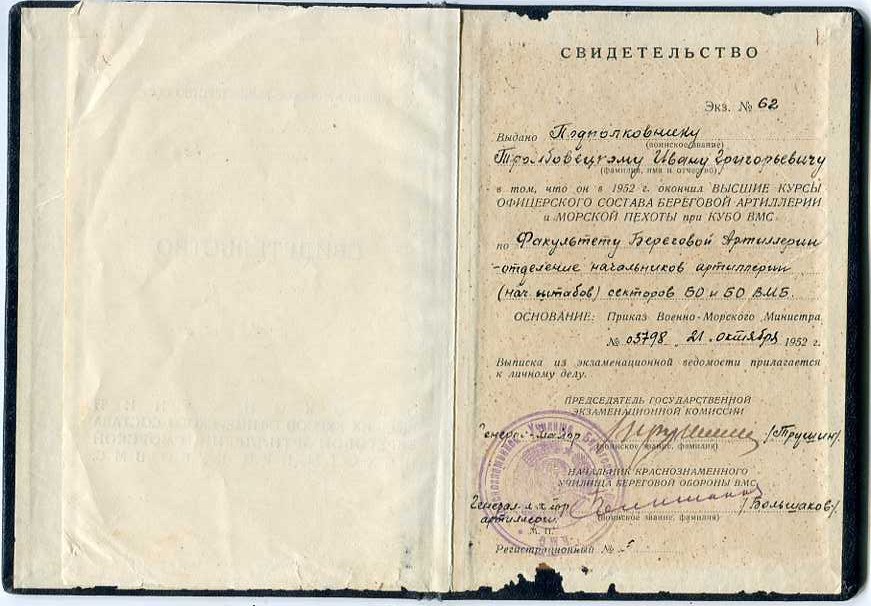 СВИДЕТЕЛЬСТВО
Экз. № 62
Выдано Подполковнику
(воинское звание)
Тромбовецкому Ивану Григорьевичу
(фамилия, имя и отчество)
в том, что он в 1952 г. окончил ВЫСШИЕ КУРСЫ
ОФИЦЕРСКОГО СОСТАВА БЕРЕГОВОЙ АРТИЛЛЕРИИ
и МОРСКОЙ ПЕХОТЫ при КУБО ВМС
по Факультету Береговой Артиллерии
-отделение начальников артиллерии
(нач. штабов) секторов БО и БО ВМБ.
ОСНОВАНИЕ: Приказ Военно-Морского Министра
№ 05798 „21" октября 1952 г.
Выписка из экзаменационной ведомости прилагается
к личному делу.
ПРЕДСЕДАТЕЛЬ ГОСУДАРСТВЕННОЙ
ЭКЗАМЕНАЦИОННОЙ КОМИССИИ
Генерал-майор /Трушин/.
(воинское звание, фамилия)
НАЧАЛЬНИК КРАСНОЗНАМЕННОГО
УЧИЛИЩА БЕРЕГОВОЙ ОБОРОНЫ ВМС
Генерал-майор /Большаков/.
артиллерии. (воинское звание, фамилия)
М. П.
Регистрационный №